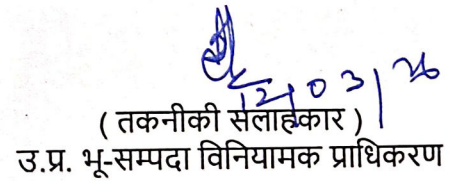 12/03/26
( तकनीकी सलाहकार )
उ.प्र. भू-सम्पदा विनियामक प्राधिकरण